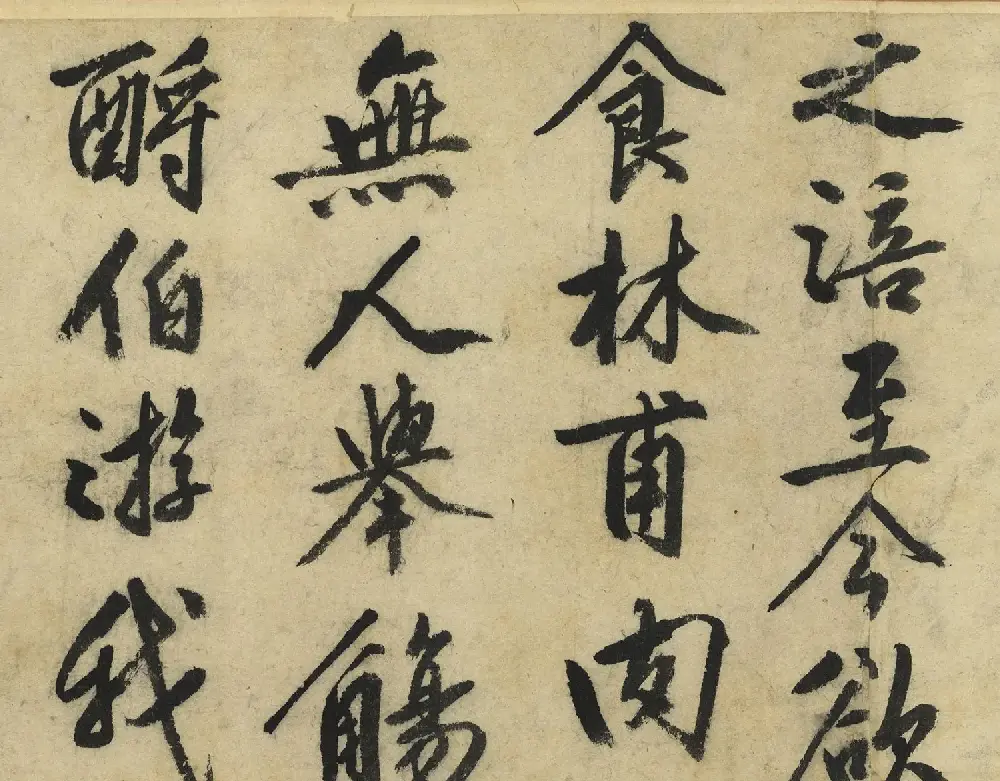 之涪至今欲
食林甫肉
無人舉觴
酹伯游我